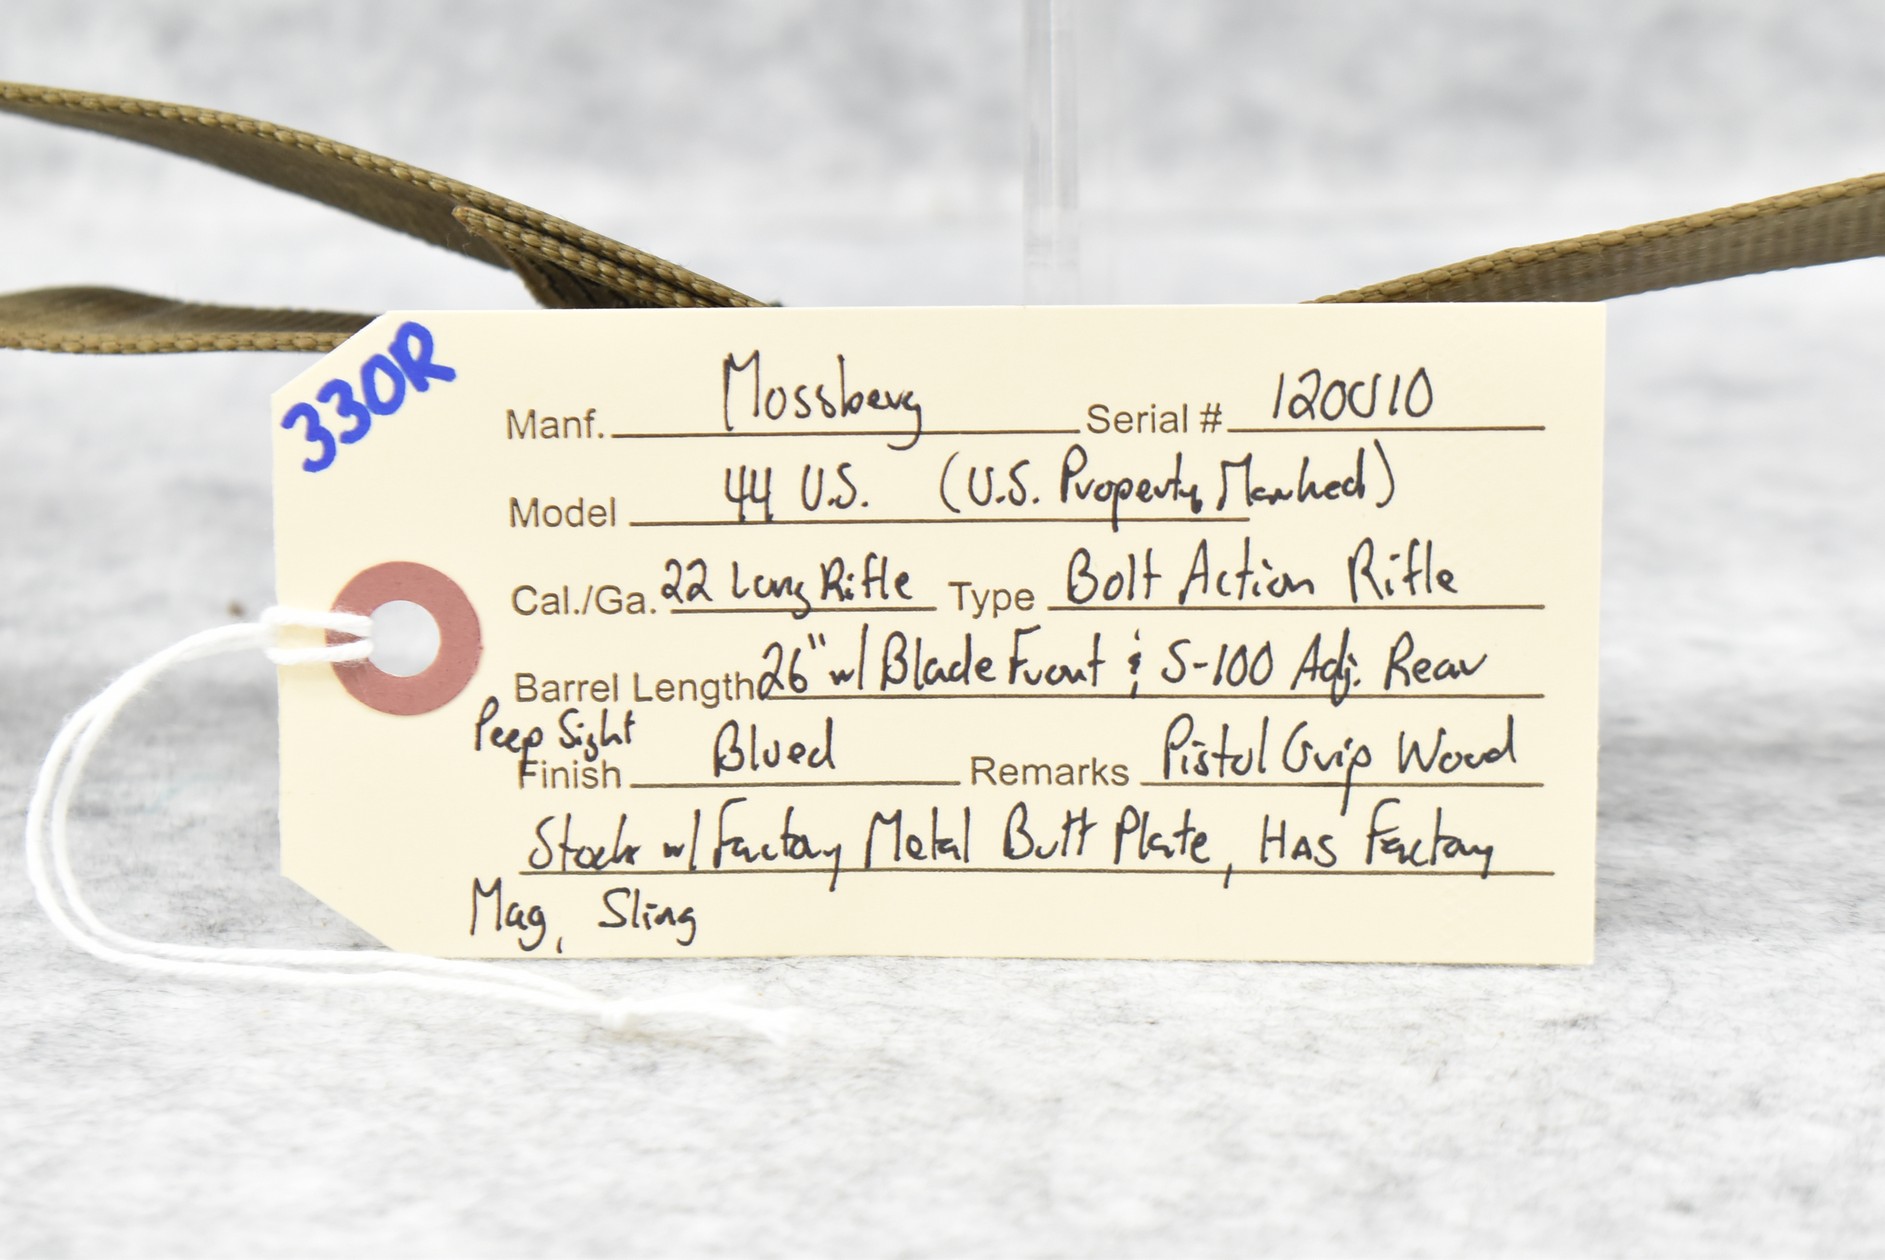 330R
Manf. Mossberg Serial # 120010
Model 44 U.S. (U.S. Property Marked)
Cal./Ga. 22 Long Rifle Type Bolt Action Rifle
Barrel Length 26" w/ Blade Front & S-100 Adj. Rear
Peep Sight
Finish Blued Remarks Pistol Grip Wood
Stock w/ Factory Metal Butt Plate, Has Factory
Mag, Sling